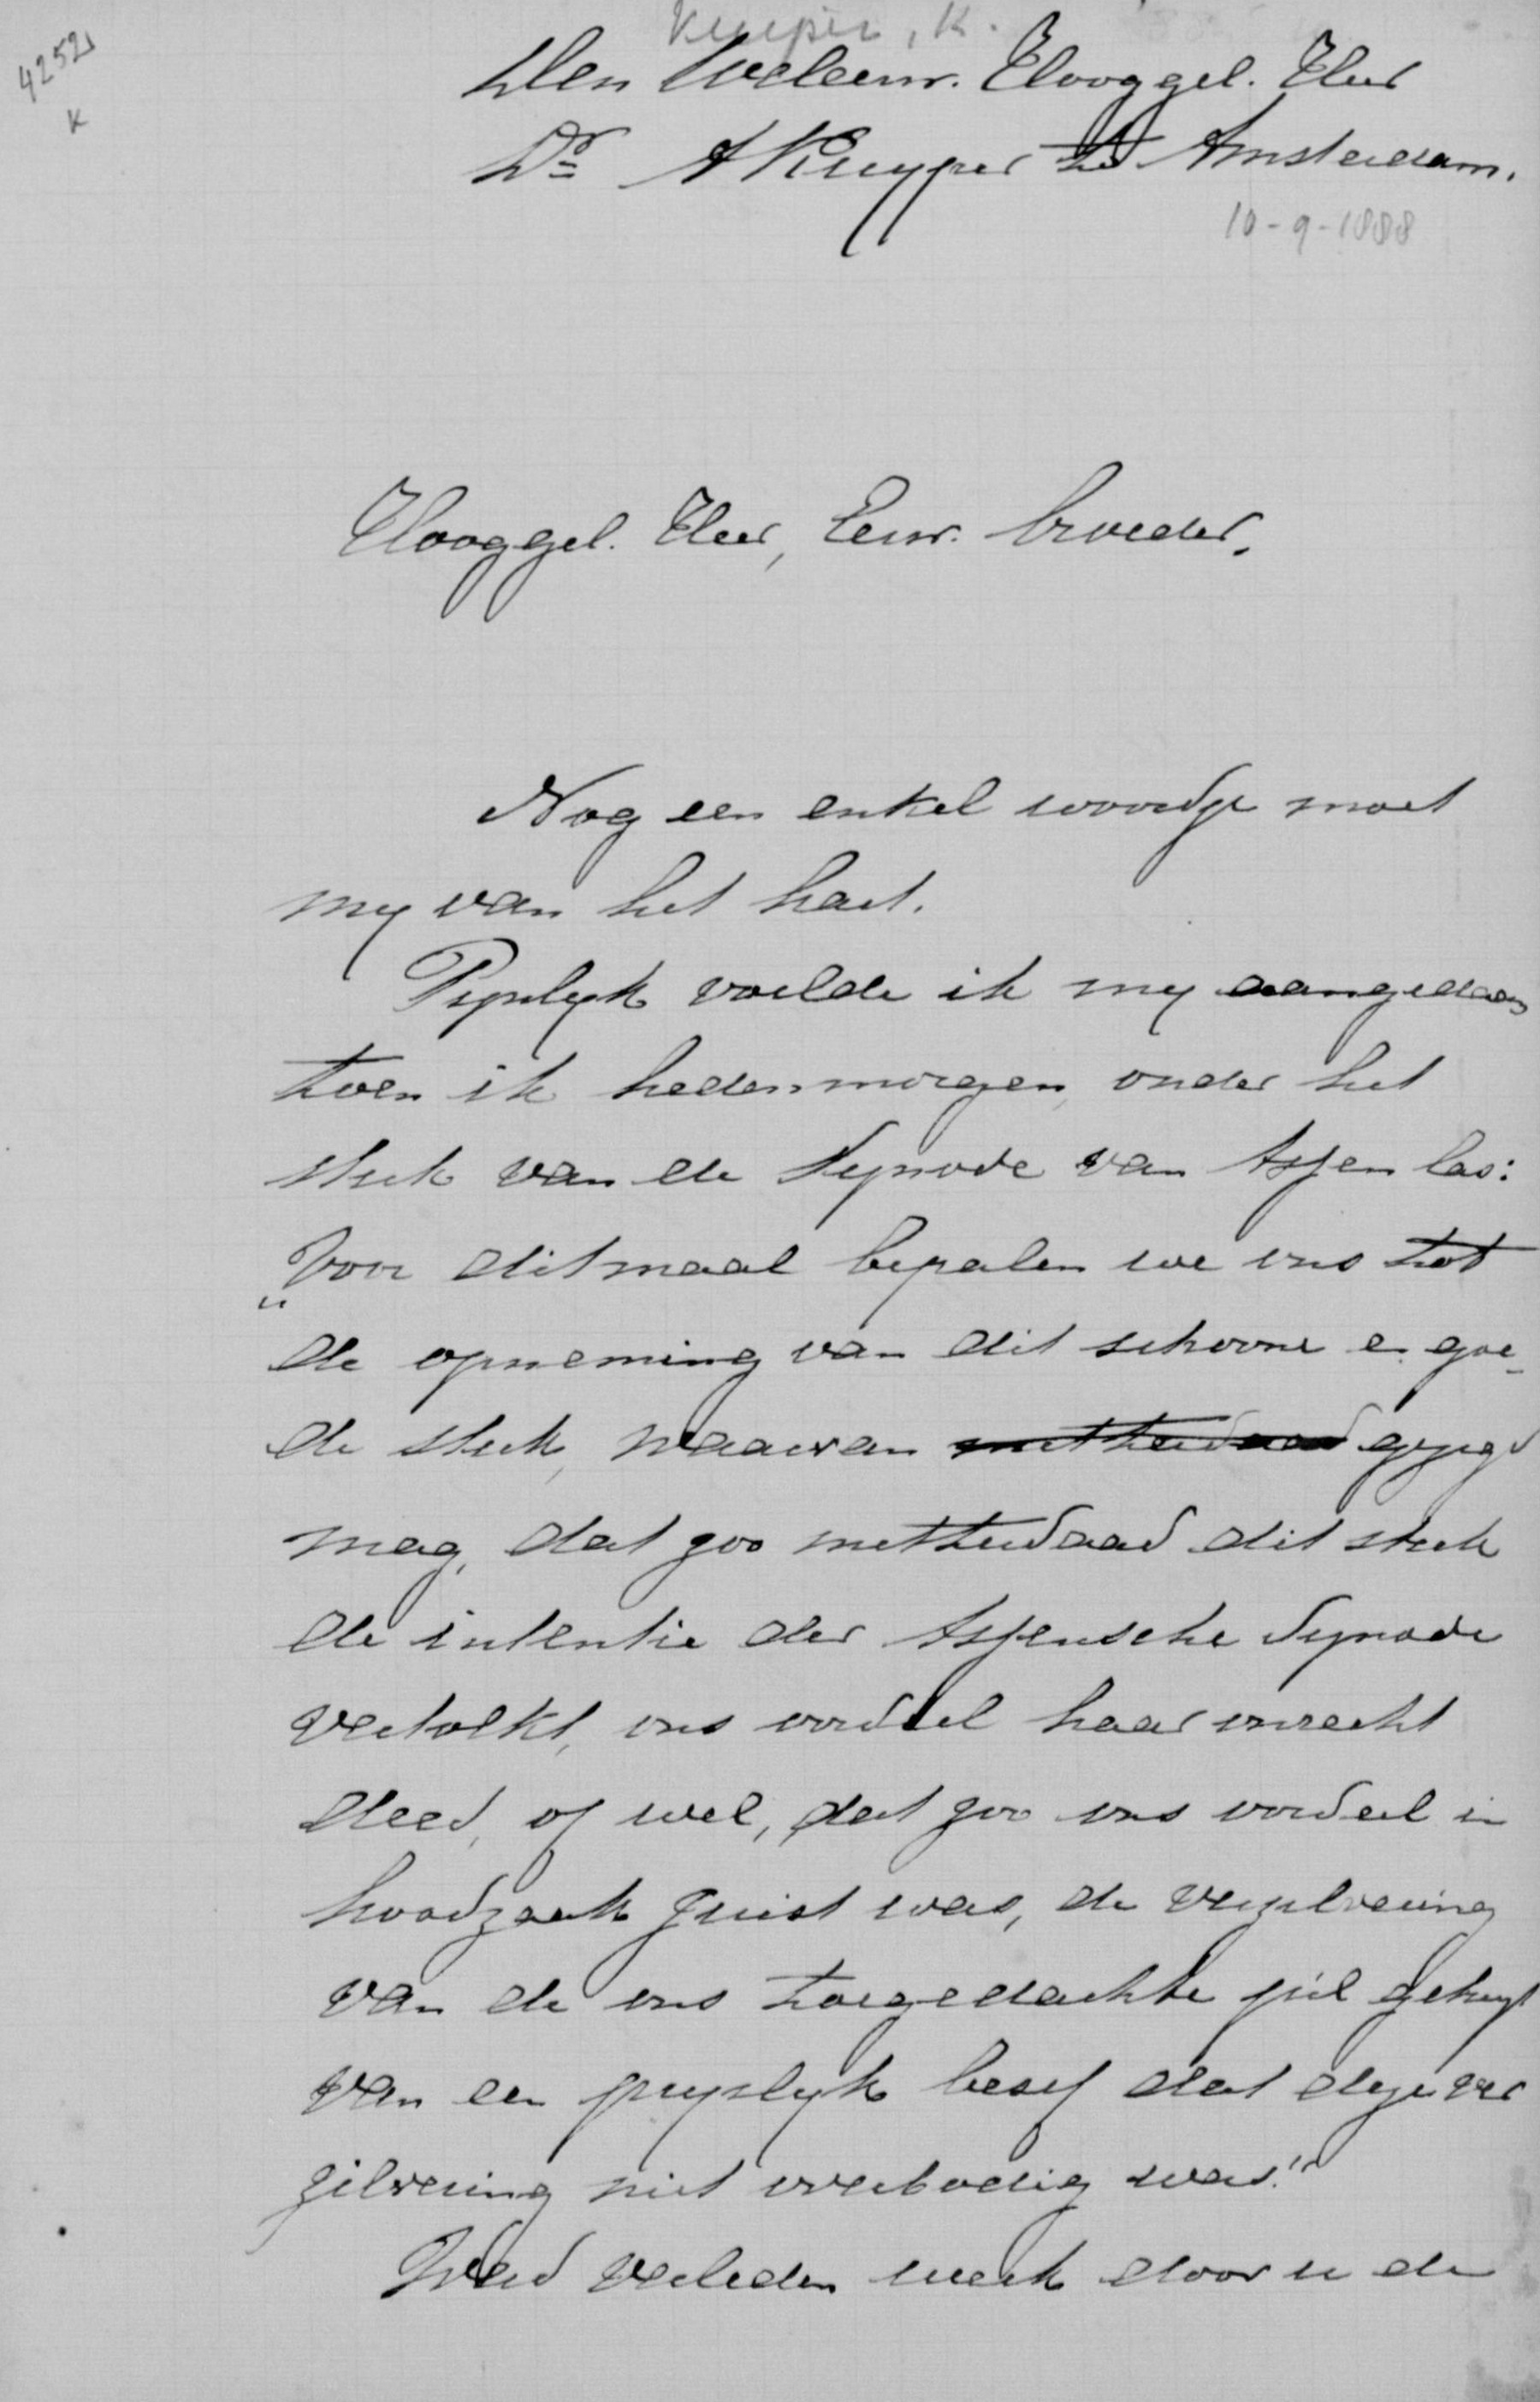 4252
K
Kuyper, K.
Den Weleerw. Hooggel. Heer
Dr A Kuyper te Amsterdam.
10-9-1888
Hooggel. Heer, Eerw. broeder,
Nog een enkel woordje moet
my van het hart.
Pynlyk voelde ik my aangedaan
toen ik hedenmorgen, onder het
stuk van de Synode van Assen las:
"Voor ditmaal bepalen we ons tot
de opneming van dit schoone en goe-
de stuk, waarvan gezegd
mag, dat zoo metterdaad dit stuk
de intentie der Assensche Synode
vertolkt, ons oordeel haar onrecht
deed, of wel, dat zoo ons oordeel in
hoofdzaak juist was, de verzilvering
van de ons toegedachte pil getuigt
van een pryslyk besef dat deze ver
zilvering niet overbodig was."
Werd verleden week door u de